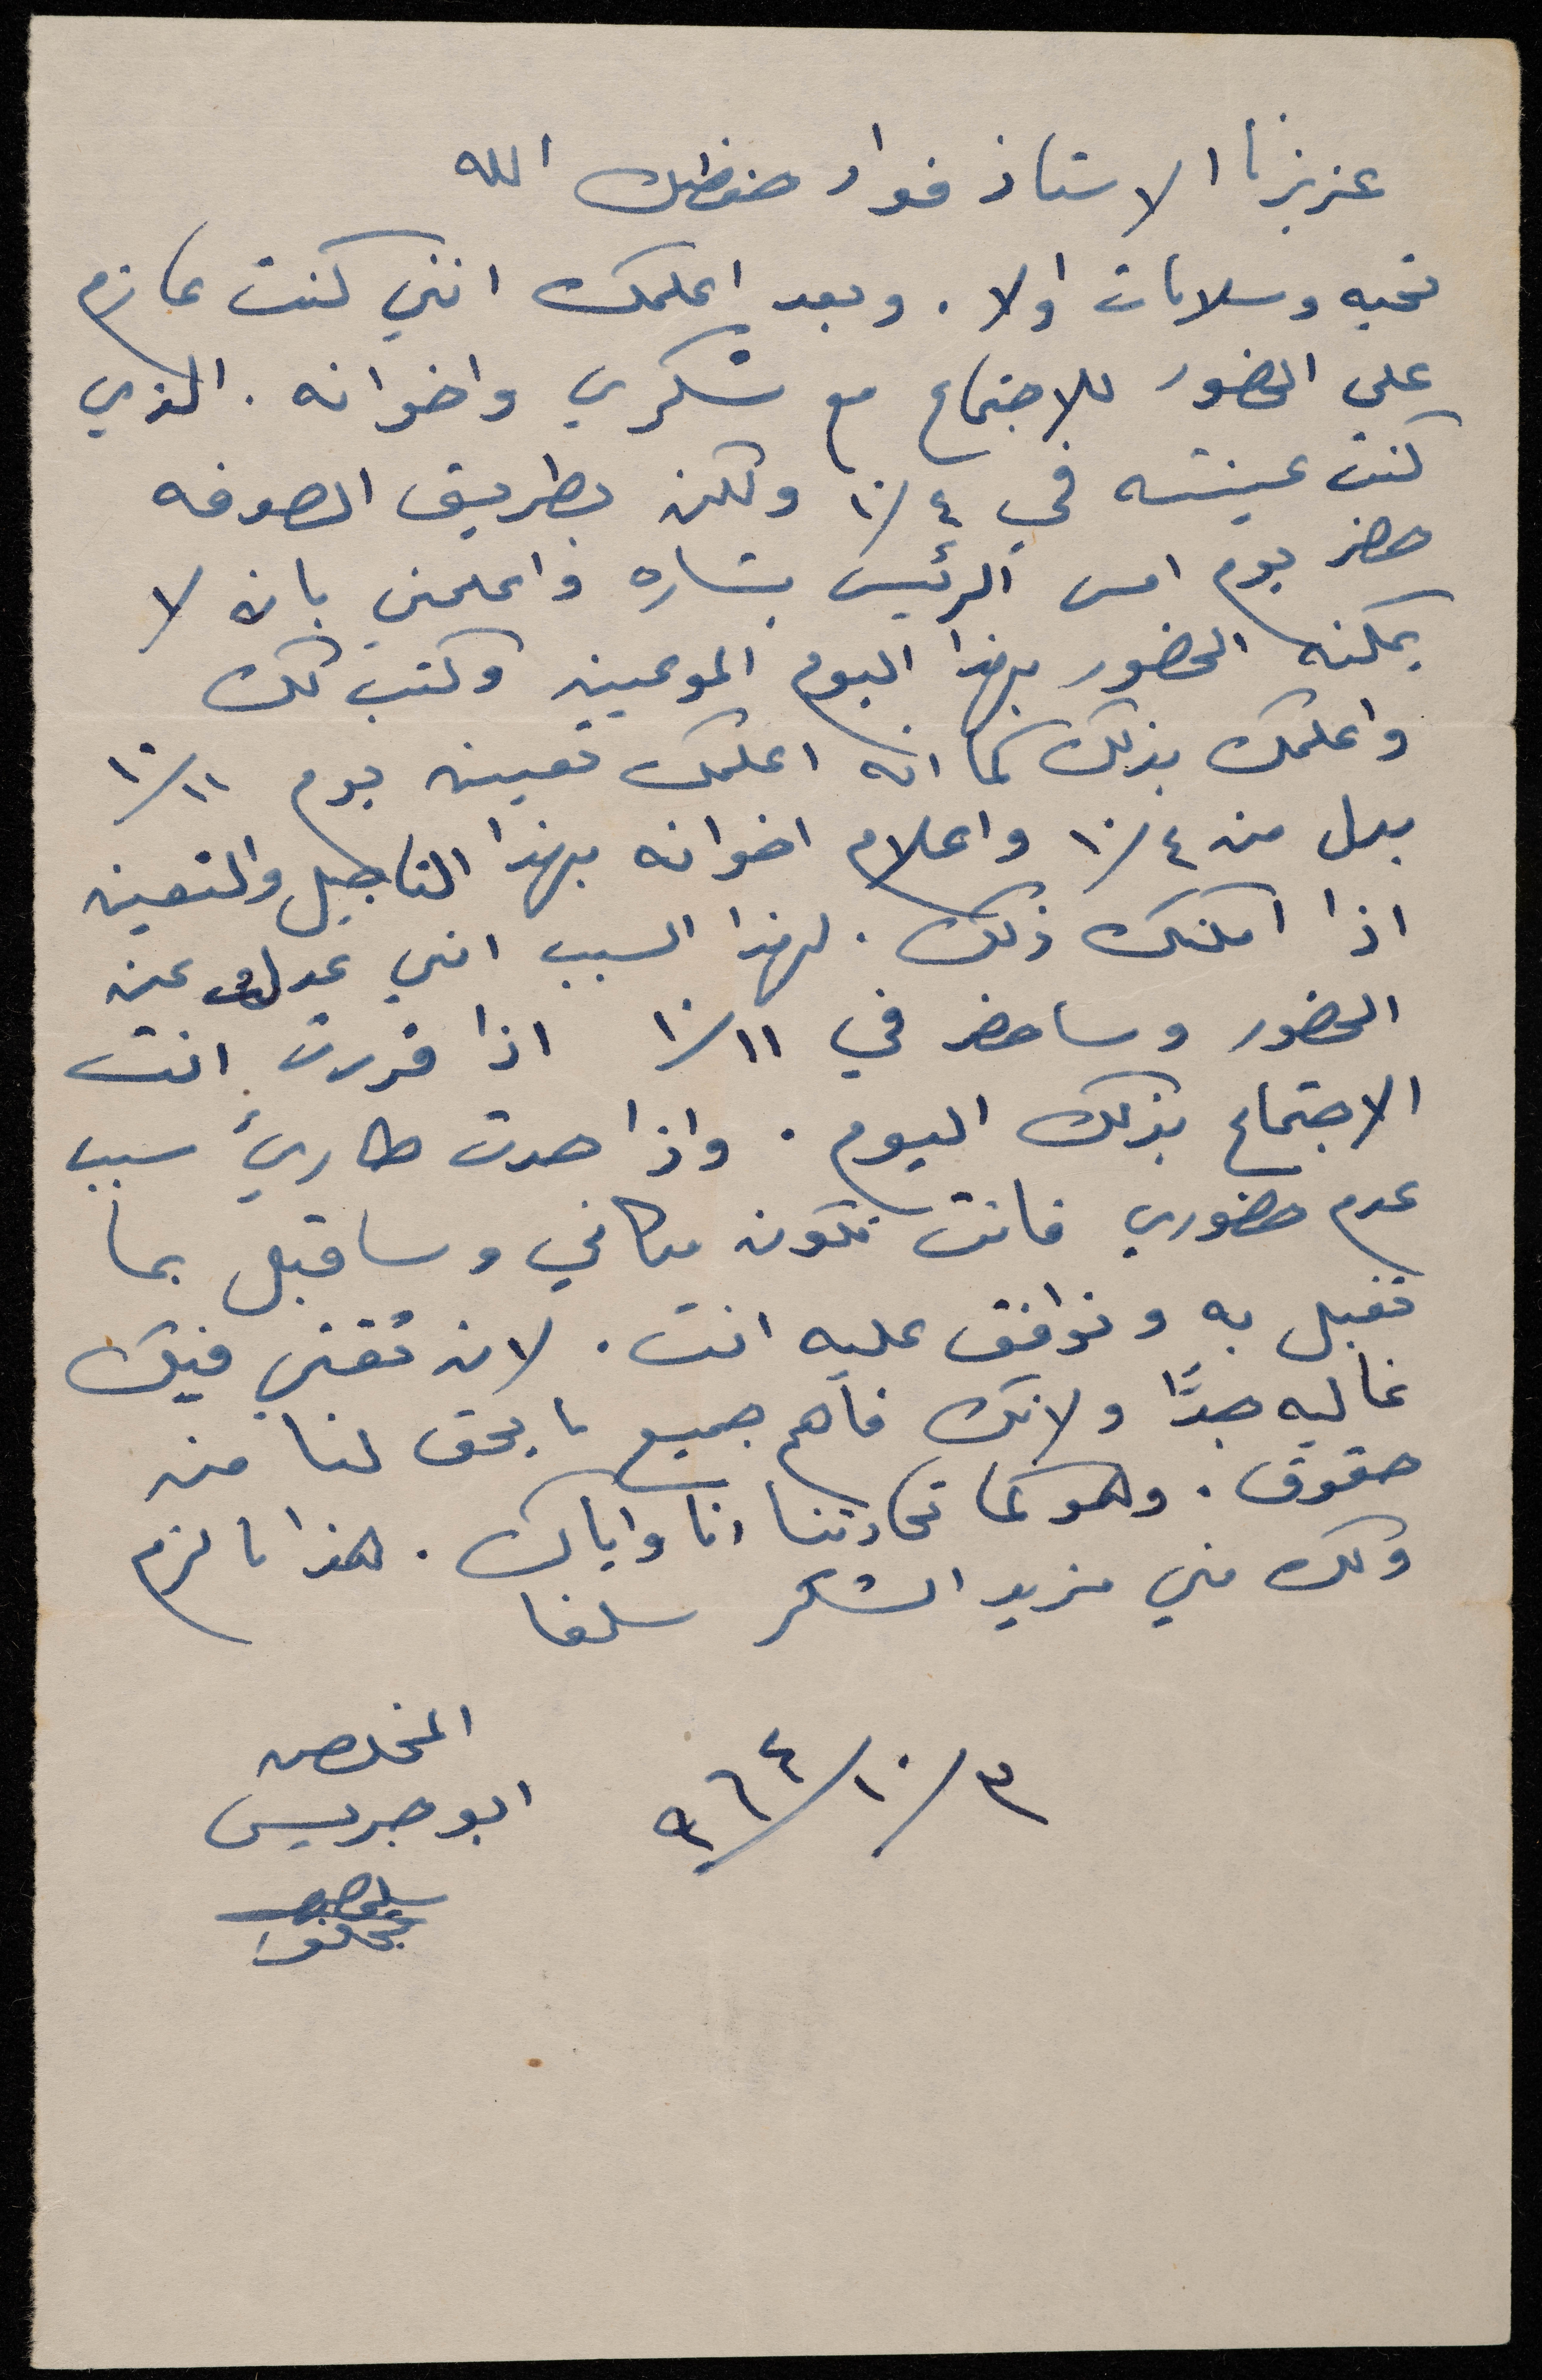 عزيزنا الاستاذ فواد حفظك الله
تحيه وسلامات اولا . وبعد اعلمك انني كنت عازم
على الحضور للاجتماع مع شكري واخوانه . الذي
كنت عينته في ١٠/٤ ولكن بطريق الصدفه
حضر يوم امس الرئيس بشاره واعلمني بانه لا
يمكنه الحضور بهذا اليوم الموعين وكتب لك
واعلمك بذلك كما انه اعلمك تعيين يوم ١٠/١١
بدل من ١٠/٤ واعلام اخوانه بهذا التاجيل والتعين
اذا امكنك ذلك . لهذا السبب انني عدلت عن
الحضور وساحضر في ١٠/١١ اذا قررت انت
الاجتماع بذلك اليوم . واذا حدث طارئ سبب
عدم حضوري فانت تكون مكاني وساقبل بما
تقبل به وتوافق عليه انت . لان ثقتي فيك
غاليه جدًا ولانك فاهم جميع ما يحق لنا من
حقوق . وهو كما تحادثنا انا واياك . هذا ما لزم
ولك مني مزيد الشكر سلفا
المخلص
ابو جريس
٣/١٠/٩٦٤